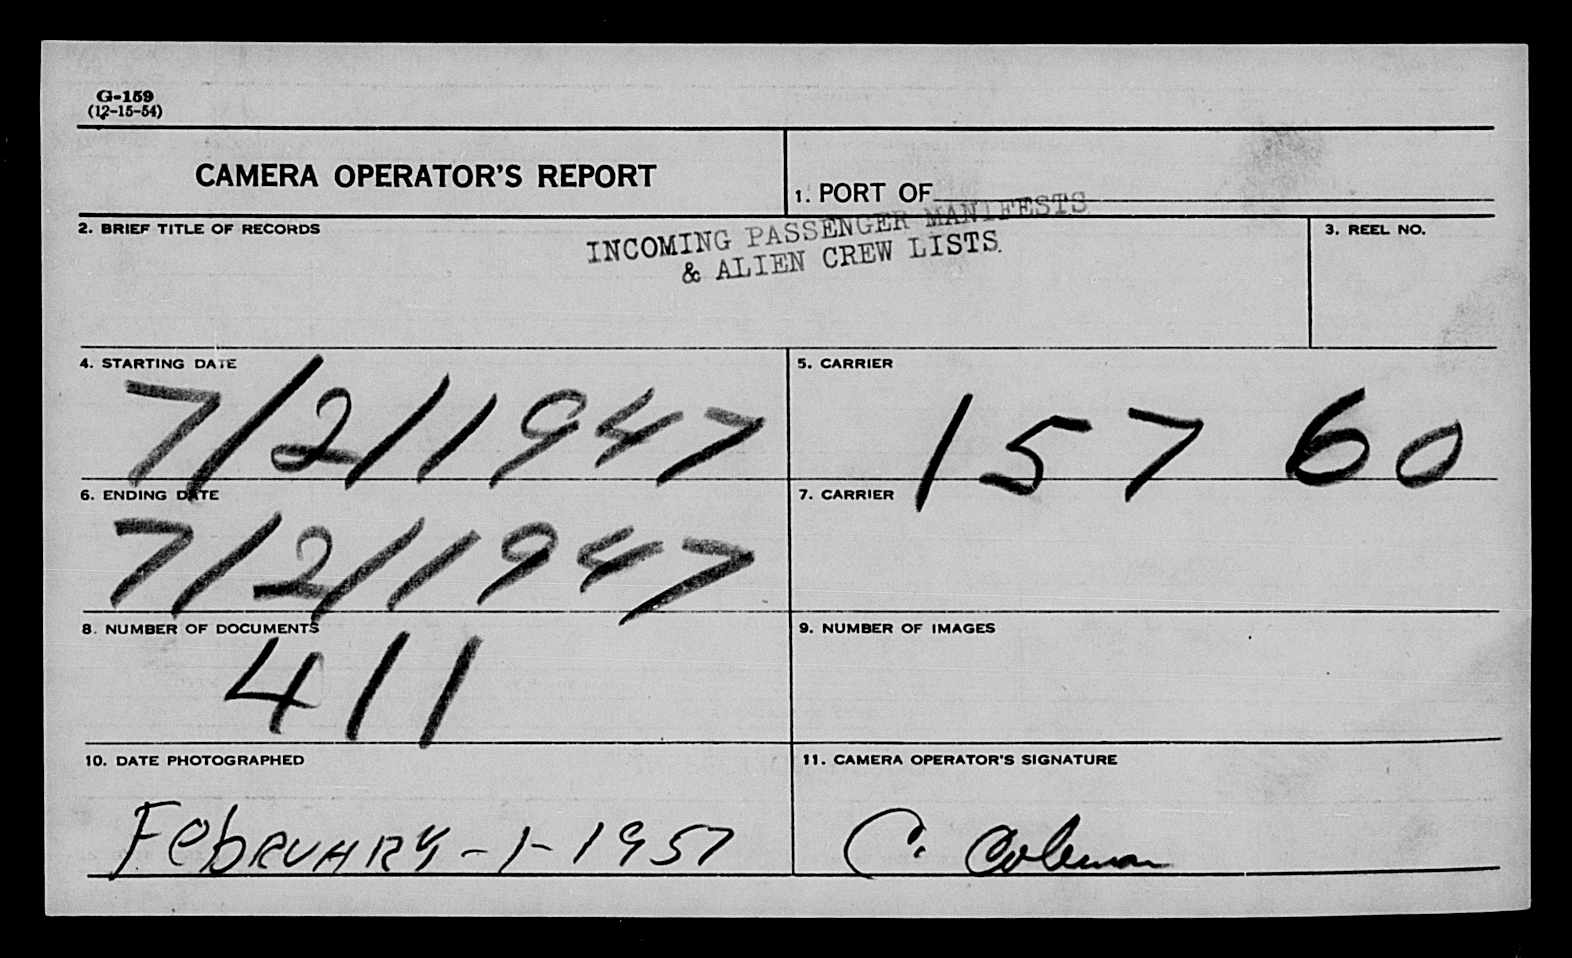 G-159
(12-15-54)
CAMERA OPERATOR'S REPORT
1. PORT OF
2. BRIEF TITLE OF RECORDS
INCOMING PASSENGER MANIFESTS
& ALIEN CREW LISTS.
3. REEL NO.
4. STARTING DATE
7/2/1947
5. CARRIER
157 60
6. ENDING DATE
7/2/1947
7. CARRIER
8. NUMBER OF DOCUMENTS
411
9. NUMBER OF IMAGES
10. DATE PHOTOGRAPHED
FebRUARY-1-1957
11. CAMERA OPERATOR'S SIGNATURE
C. Coleman